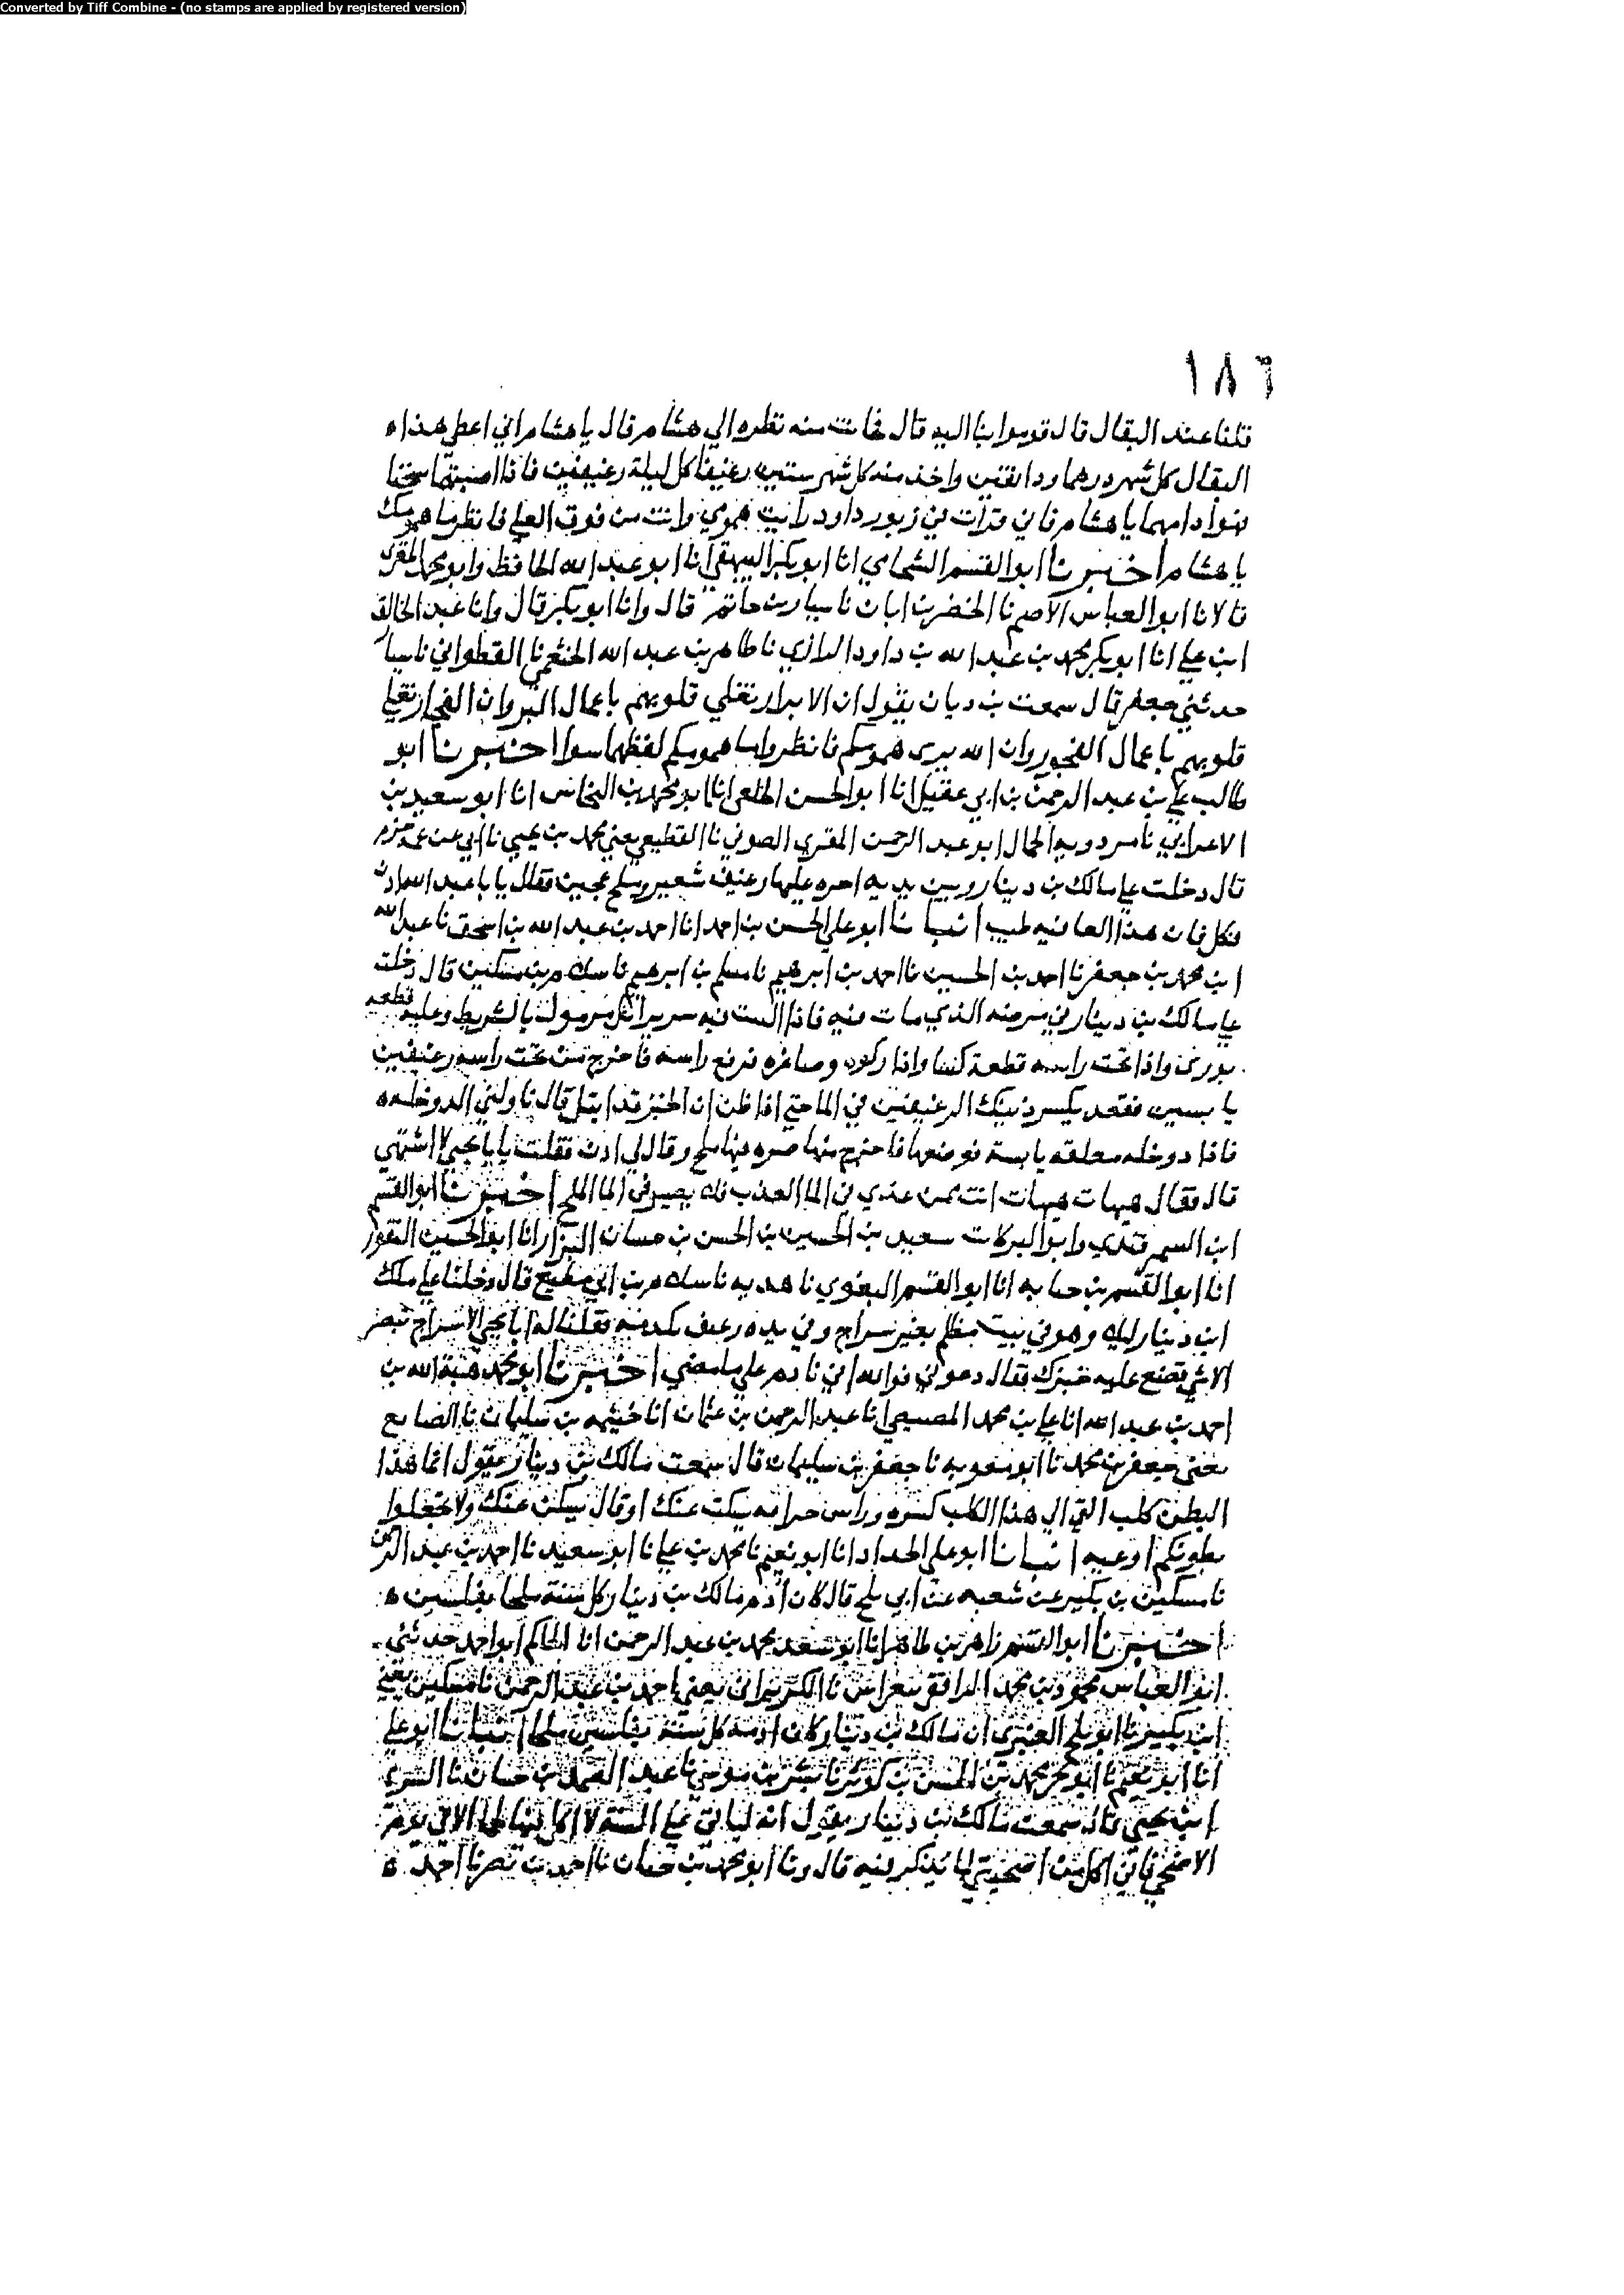 Converted by Tiff Combine - (no stamps are applied by registered version)
١٨٦
قلنا عند البقال قال قوموا بنا اليه قال فحانت منه نظره الي هشام قال يا هشام اني اعطي هذا ه
البقال كل شهر درهما ودانقين واخذ منه كل شهر ستين رغيفا كل ليلة رغيفين فاذا اصبتهما سخنا
فهو ادامهما يا هشام فاني قرات في زبور داود رايت همومي وانت من فوق العلي فانظر ما همومك
يا هشام اخبرنا ابو القسم الشحامي انا ابو بكر البيهقي انا ابو عبد الله الحافظ وابو محمد المقرى
قالا نا ابو العباس الاصم نا الخضر بن ابان نا سيار بن حاتم قال وانا ابو بكر قال وانا عبد الخالق
ابن علي انا ابو بكر محمد بن عبد الله بن داود الرازي نا طاهر بن عبد الله الخثعمي نا القطواني نا سيار
حدثني جعفر قال سمعت بن ديان يقول ان الابرار تغلي قلوبهم باعمال البر وان الفجار تغلي
قلوبهم باعمال الفجور وان الله يرى همومكم فانظروا ما همومكم لفظهما سوا اخبرنا ابو
طالب علي بن عبد الرحمن بن ابي عقيل انا ابو الحسن الخلعي انا ابو محمد بن النحاس انا ابو سعيد بن
الاعرابي نا مردويه الحمال ابو عبد الرحمن المقري الصوفي نا القطيعي يعني محمد بن يحيى نا ابي عن عمي حزم
قال دخلت علي مالك بن دينار وبين يديه اجره عليها رغيف شعير وملح عجين فقال يا با عبد الله ادن
فكل فان هذا العافيه طيب انبانا ابو علي الحسن بن احمد انا احمد بن عبد الله بن اسحق نا عبد الله
ابن محمد بن جعفر نا احمد بن الحسين نا احمد بن ابرهيم نا مسلم بن ابرهيم نا سلام بن مسكين قال دخلت
علي مالك بن دينار في مرضه الذي مات فيه فاذا البيت فيه سرير اثل مرمول بالشريط وعليه قطعه
بوري واذا تحت راسه قطعة كسا واذا ركوه وصاغره فرفع راسه فاخرج من تحت راسه رغيفين
يابسين فقعد يكسر ذينك الرغيفين في الماحتي اذا ظن ان الخبز قد ابتل قال ناولني الدوخله ه
فاذا دوخله معلقه يابسة فوضعها فاخرج منها صره فيها ملح وقال لي ادن فقلت يا با يحيى لا اشتهي
قال فقال هيهات هيهات انت ممن غذي في الما العذب فلا يصبر في الما الملح اخبرنا ابو القسم
ابن السمرقندي وابو البركات سعيد بن الحسين بن الحسن بن حسان البزار انا ابو الحسين النقور
انا ابو القسم بن حبابه انا ابو القسم البغوي نا هدبه نا سلام بن ابي مطيع قال دخلنا علي ملك
ابن دينار ليله وهو في بيت مظلم بغير سراج وفي يده رغيف يكدمه فقلنا له ابا يحيى الا سراج تبصر
الا شي تضع عليه خبزك فقال دعوني فوالله اني نادم علي ما مضي اخبرنا ابو محمد هبة الله بن
احمد بن عبد الله انا علي بن محمد المصيصي انا عبد الرحمن بن عثمان انا خيثمه بن سليمان نا الصايع
يعني جعفر بن محمد نا ابو معويه نا جعفر بن سليمان قال سمعت مالك بن دينار يقول انما هذا
البطن كلب القي الي هذا الكلب كسره وراس حرافه يسكت عنك او قال يسكن عنك ولا تجعلوا
بطونكم اوعيه انبانا ابو علي الحداد انا ابو نعيم نا محمد بن علي نا ابو سعيد نا احمد بن عبد الرحمن
نا مسكين بن بكير عن شعبه عن ابي بلج قال كان ادم مالك بن دينار كل سنة ملحا بفلسين ه
اخبرنا ابو القسم زاهر بن طاهر انا ابو سعد محمد بن عبد الرحمن انا الحاكم ابو احمد حدثني
ابو العباس محمود بن محمد الرافقي بعراس نا الكزبراني يعني احمد بن عبد الرحمن نا مسكين يعني
ابن بكير نا ابو بلج العنبرى ان مالك بن دينار كان ادمه كل سنة بفلسين ملحا انبانا ابو علي
انا ابو نعيم نا ابو بحر محمد بن الحسن بن كوثر نا بشر بن موسي نا عبد الصمد بن حسان نا السري
ابن يحيى قال سمعت مالك بن دينار يقول انه لياتي علي السنة لا اكل فيها لحما الا في يوم
الاضحي فاني اكل من اضحيتي لما يذكر فيه قال ونا ابو محمد بن حيان نا احمد بن نصر نا احمد ه